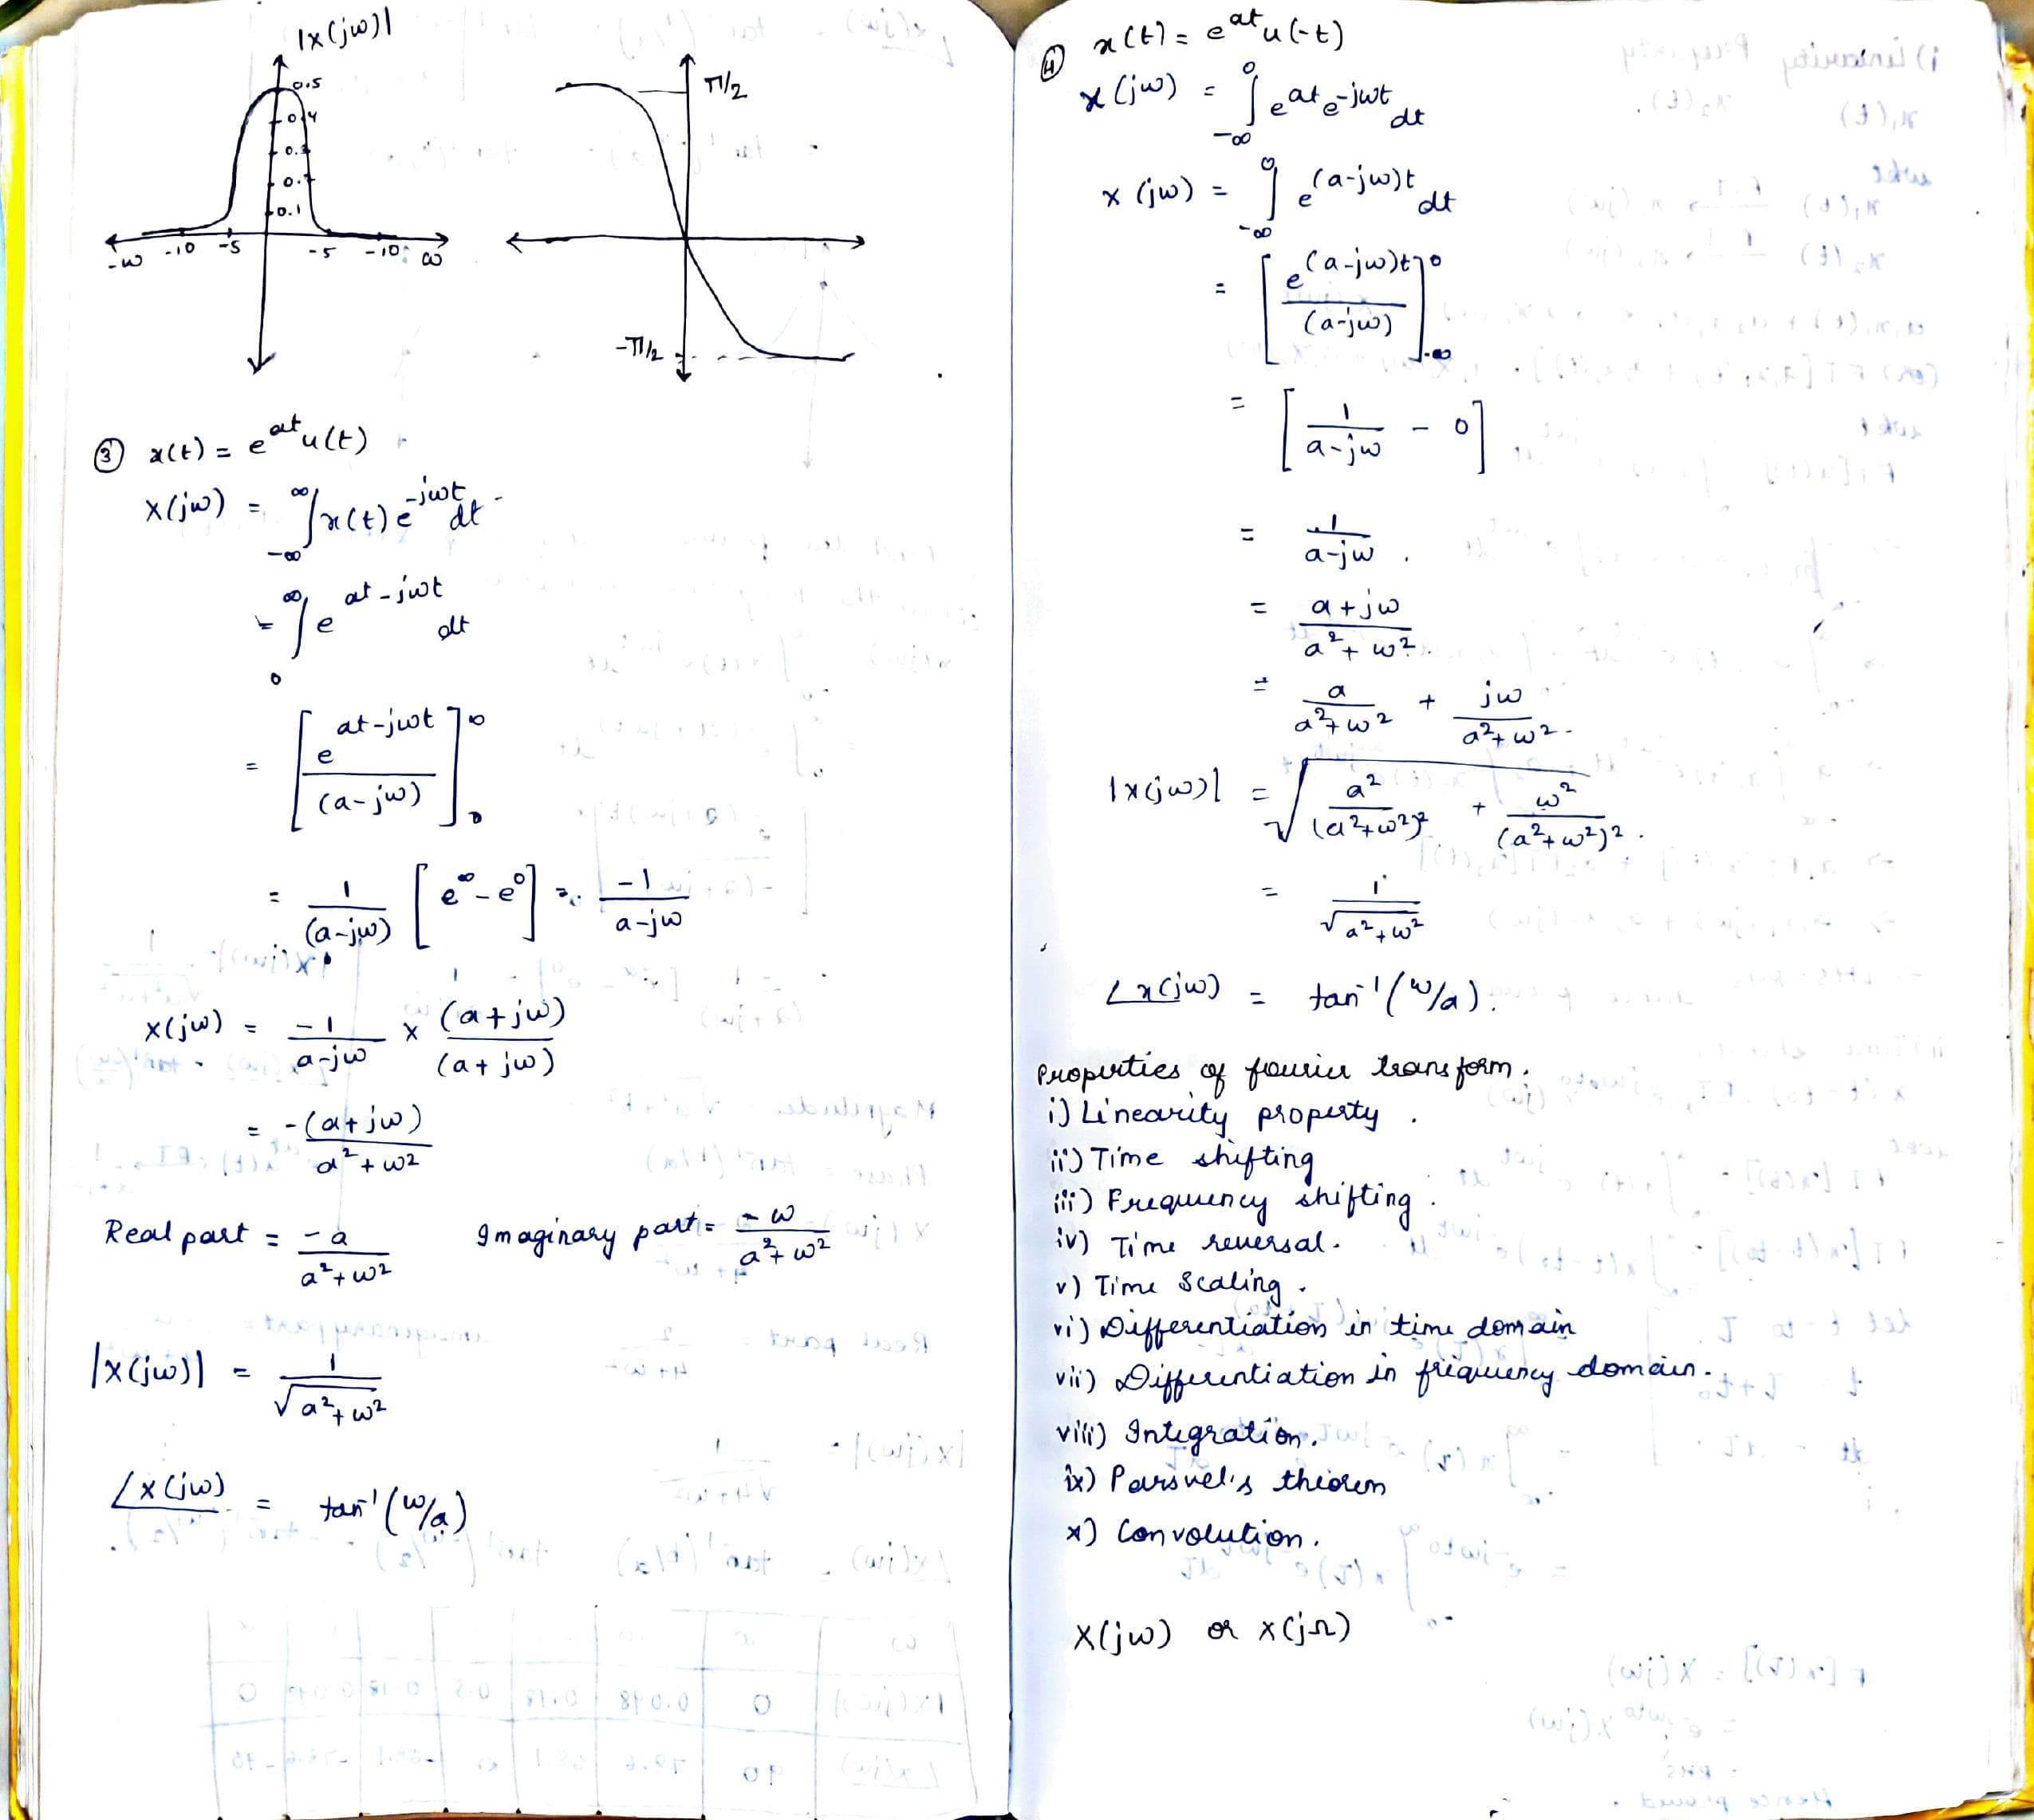 |x(jω)|
0.5
0.4
0.1
-ω -10 -5 -5 -10 ω
π/2
-π/2
③ x(t) = e^{at} u(t)
X(jω) = ∫_{-∞}^{∞} x(t) e^{-jωt} dt
= ∫_{0}^{∞} e^{at-jωt} dt
= [e^{at-jωt}/(a-jω)]_{0}^{∞}
= 1/(a-jω) [e^{∞} - e^{0}] = -1/(a-jω)
X(jω) = -1/(a-jω) × (a+jω)/(a+jω)
= -(a+jω)/(a²+ω²)
Real part = -a/(a²+ω²) Imaginary part = -ω/(a²+ω²)
|X(jω)| = 1/√(a²+ω²)
∠X(jω) = tan⁻¹(ω/a)
④ x(t) = e^{at} u(-t)
X(jω) = ∫_{-∞}^{0} e^{at} e^{-jωt} dt
X(jω) = ∫_{-∞}^{0} e^{(a-jω)t} dt
= [e^{(a-jω)t}/(a-jω)]_{-∞}^{0}
= [1/(a-jω) - 0]
= 1/(a-jω).
= (a+jω)/(a²+ω²).
= a/(a²+ω²) + jω/(a²+ω²).
|x(jω)| = √(a²/(a²+ω²)² + ω²/(a²+ω²)²).
= 1/√(a²+ω²)
∠x(jω) = tan⁻¹(ω/a).
Properties of fourier transform.
i) Linearity property.
ii) Time shifting
iii) Frequency shifting.
iv) Time reversal.
v) Time Scaling.
vi) Differentiation in time domain
vii) Differentiation in frequency domain.
viii) Integration.
ix) Parsvel's theorem
x) Convolution.
X(jω) or X(jΩ)